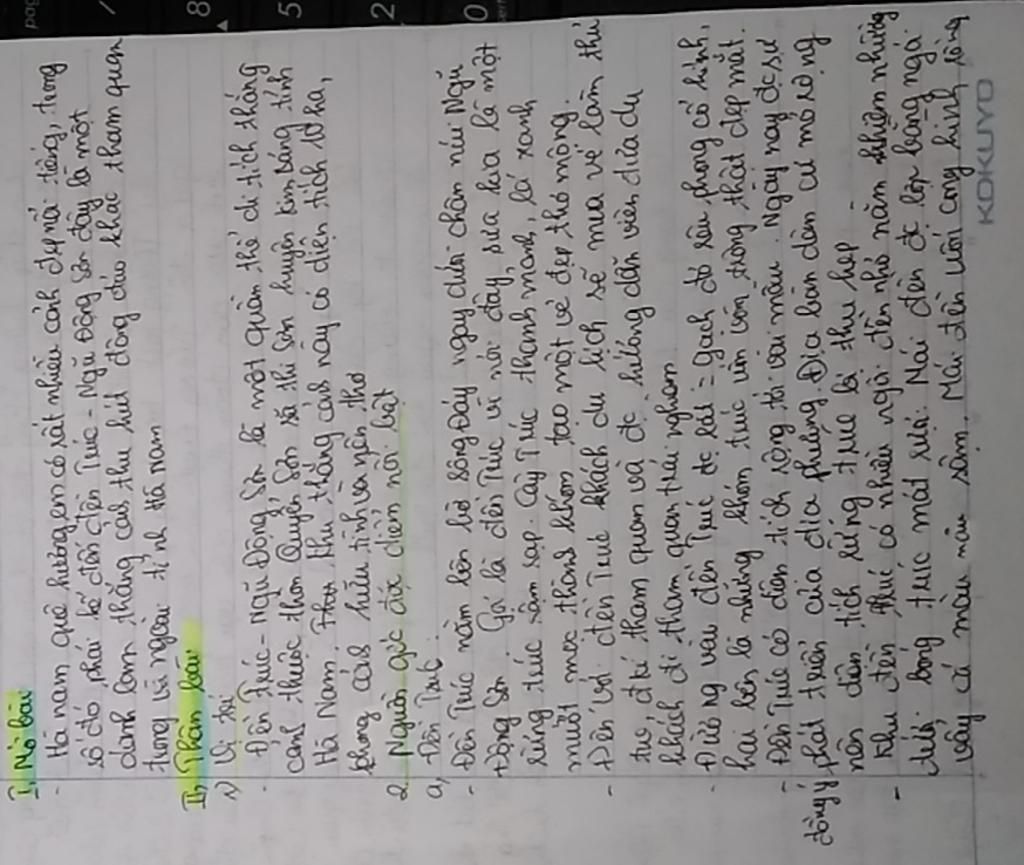 I, Mở bài
- Hà nam quê hương em có rất nhiều cảnh đẹp nổi tiếng, trong
số đó phải kể đến đền Trúc - Ngũ Động Sơn đây là một
danh lam thắng cảnh thu hút đông đảo khác tham quan
trong và ngoài tỉnh Hà Nam
II, Thân bài
1) Vị trí
- Đền trúc - Ngũ Động Sơn là một quần thể di tích thắng
cảnh thuộc thôn Quyển Sơn xã thi Sơn huyện Kim bảng tỉnh
Hà Nam. khu thắng cảnh này có diện tích 10 ha,
phong cảnh hữu tình và nên thơ
2. Nguồn gốc đặc điểm nổi bật
a, Đền Trúc
- Đền Trúc nằm bên bờ sông Đáy ngay dưới chân núi Ngũ
Động Sơn. Gọi là đền Trúc vì nơi đây, xưa kia là một
rừng trúc rậm rạp. Cây Trúc thanh mảnh, lá xanh
mướt mọc thành khóm tạo một vẻ đẹp thơ mộng.
- Đến với đền Trúc khách du lịch sẽ mua vé làm thủ
tục, đ ký tham quan và đc hướng dẫn viên đưa du
khách đi tham quan trải nghiệm
- Đường vào đền Trúc đc lát = gạch đỏ rêu phong cổ kính,
hai bên là những khóm trúc uốn trông thật đẹp mắt.
- Đền Trúc có diện tích rộng tới vài mẫu. Ngày nay đc sự
đồng ý phát triển của địa phương địa bàn dân cư mở rộng
nên diện tích rừng trúc bị thu hẹp
- Khu đền trúc có nhiều ngôi đền nhỏ nằm khiêm nhường
dưới bóng trúc mát rượi. Mái đền đc lợp bằng ngói
vảy cá màu nâu sậm. Mái đền uốn cong hình rồng
KOKUYO
8
5
2
0